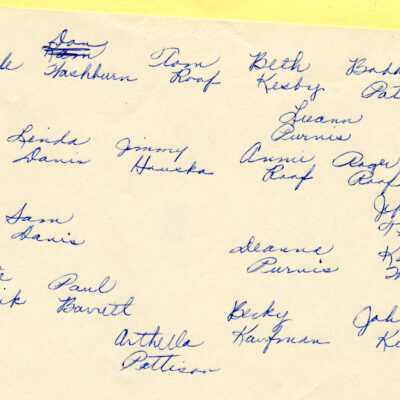 Don
Washburn
Tom
Roof
Beth
Kesby
Luann
Purnis
Linda
Danis
Jimmy
Hauska
Annie
Roof
Roger
Roof
Sam
Danis
Deanna
Purnis
Paul
Barrett
Becky
Kaufman
Arthella
Pattison